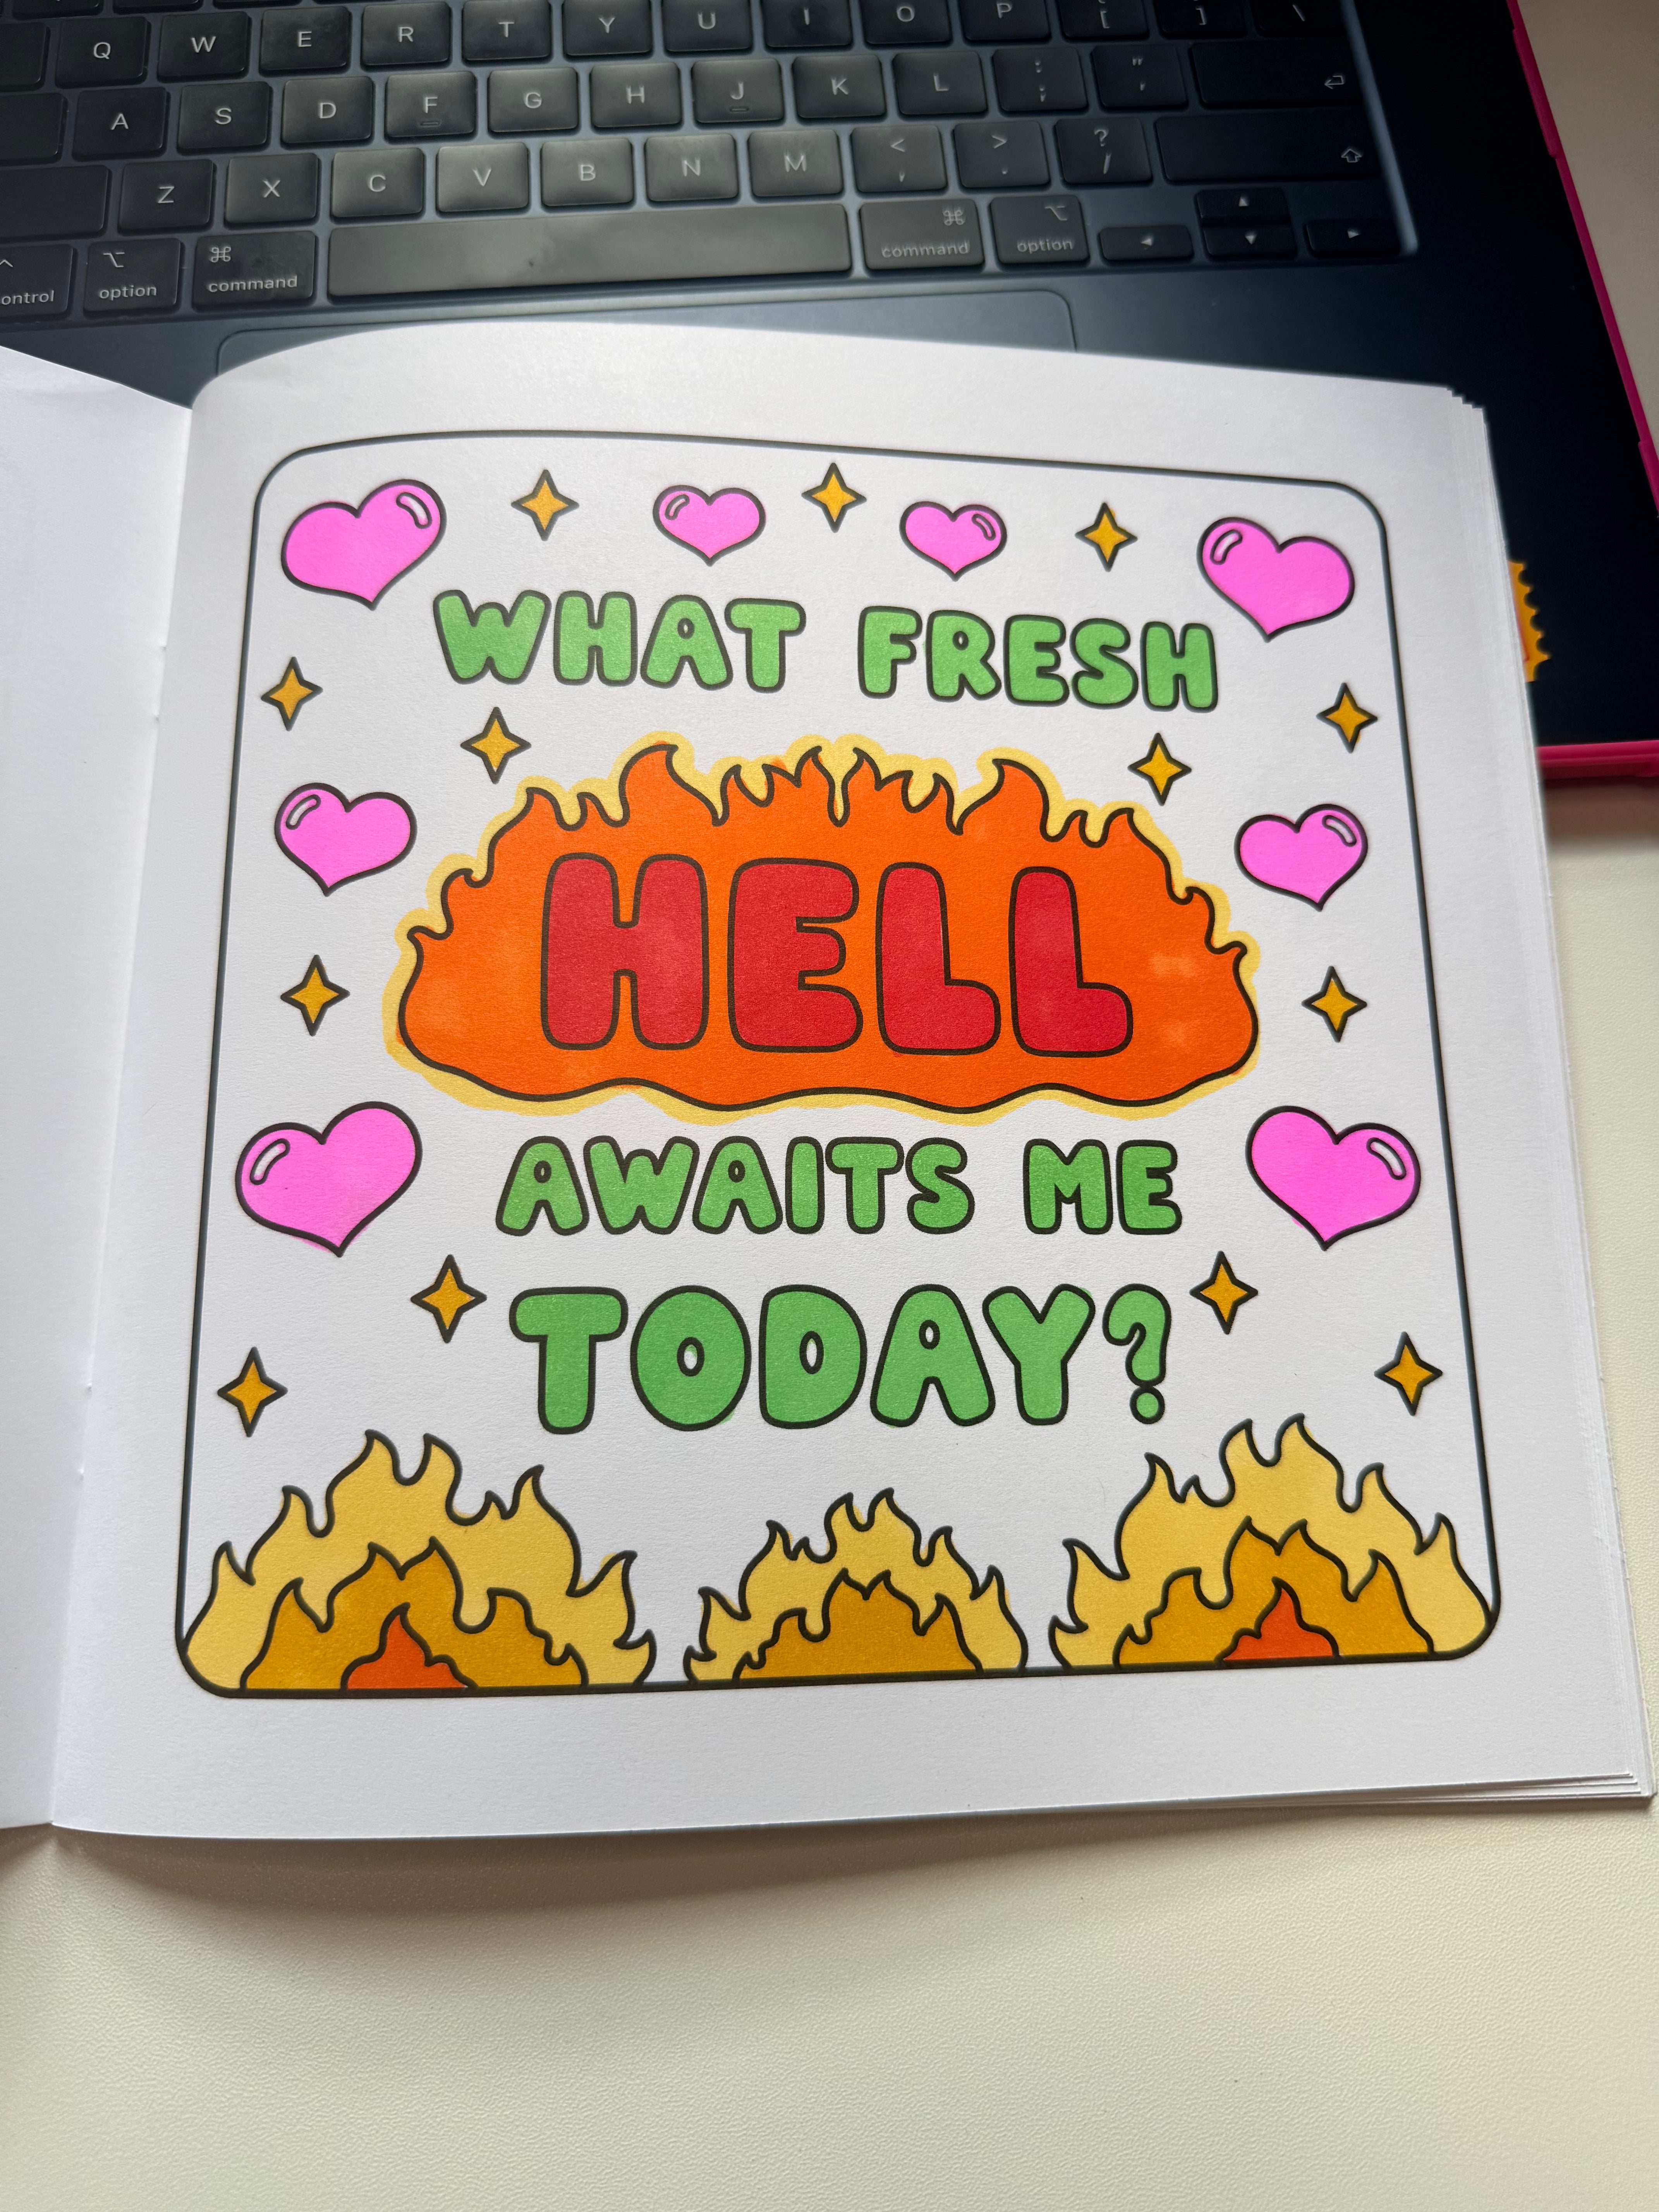 Q W E R T Y U I O P [ ] \
A S D F G H J K L : ; " '
Z X C V B N M < , > . ? /
control option command command option
WHAT FRESH
HELL
AWAITS ME
TODAY?